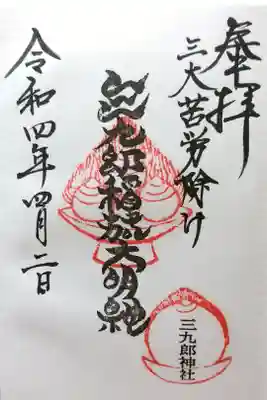 奉拝
三大苦労除け
三九郎稲荷大明神
令和四年四月二日
三九郎神社